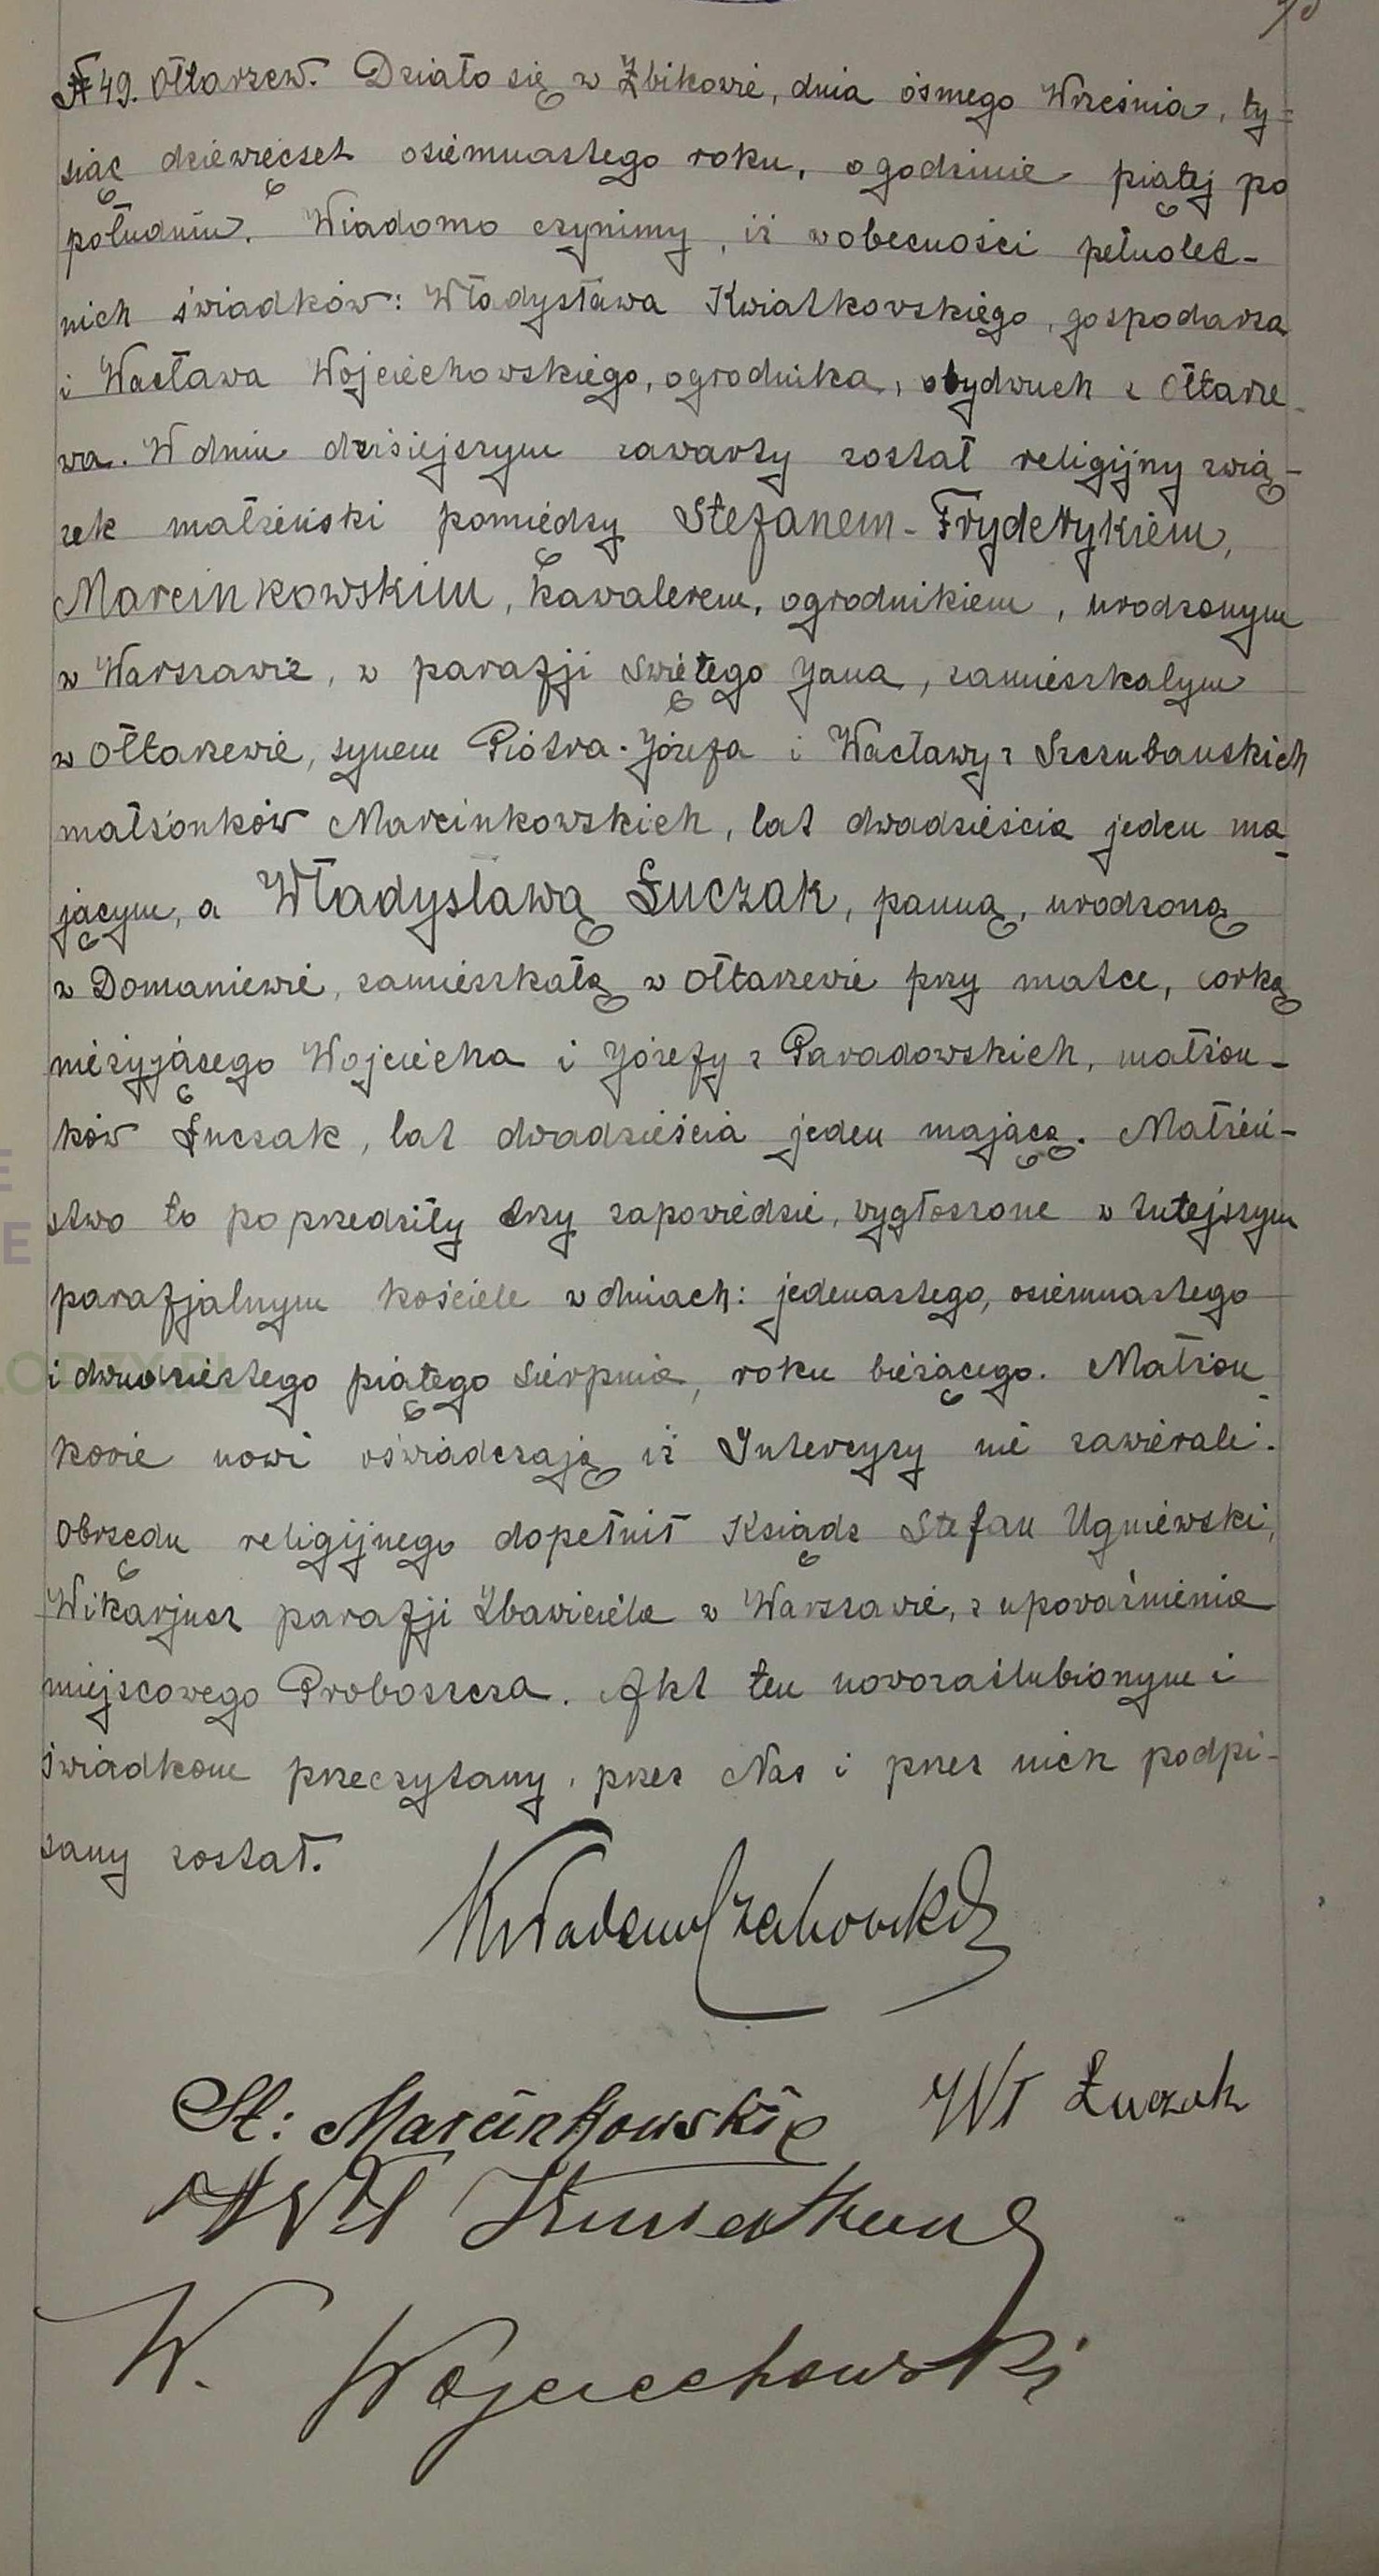 № 49. Ołtarzew. Działo się w Żbikowie, dnia ósmego Września, ty-
siąc dziewięcset osiemnastego roku, o godzinie piątej po
południu. Wiadomo czynimy, iż w obecności pełnolet-
nich świadków: Władysława Kwiatkowskiego, gospodarza
i Wacława Wojciechowskiego, ogrodnika, obydwuch z Ołtarze-
wa. W dniu dzisiejszym zawarty został religijny zwią-
zek małżeński pomiędzy Stefanem-Fryderykiem,
Marcinkowskim, kawalerem, ogrodnikiem, urodzonym
w Warszawie, w parafji Świętego Jana, zamieszkałym
w Ołtarzewie, synem Piotra-Józefa i Wacławy z Szczubańskich
małżonków Marcinkowskich, lat dwadzieścia jeden ma-
jącym, a Władysławą Łuczak, panną, urodzoną
w Domaniewie, zamieszkałą w Ołtarzewie przy matce, córką
nieżyjącego Wojciecha i Józefy z Paradowskich, małżon-
ków Łuczak, lat dwadzieścia jeden mającą. Małżeń-
stwo to poprzedziły trzy zapowiedzie, wygłoszone w tutejszym
parafjalnym kościele w dniach: jedenastego, osiemnastego
i dwudziestego piątego Sierpnia, roku bieżącego. Małżon-
kowie nowi oświadczają iż Intercyzy nie zawierali.
Obrzędu religijnego dopełnił Ksiądz Stefan Ugniewski,
Wikarjusz parafji Zbawiciela w Warszawie, z upoważnienia
miejscowego Proboszcza. Akt ten nowozaślubionym i
świadkom przeczytany, przez Nas i przez nich podpi-
sany został.
St: Marcinkowski Wł Łuczak
Wł Kwiatkowski
W. Wojciechowski